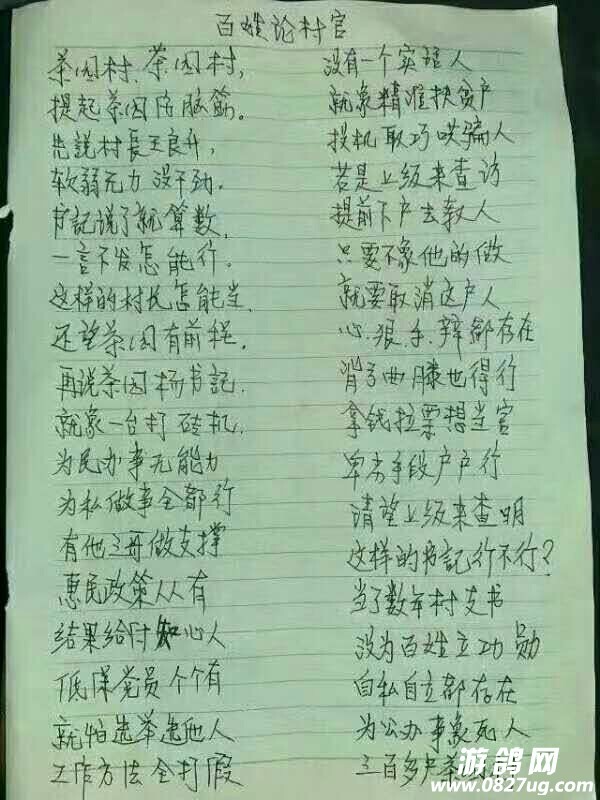 百姓论村官
茶园村、茶园村,
提起茶园伤脑筋。
先説村長王良升,
软弱无力没干劲.
书記说了就算数,
一言不发怎能行.
这样的村长怎能当.
还望茶园有前程.
再说茶园杨书记.
就象一台打砖机.
为民办事无能力
为私做事全都行
有他三哥做支撑
惠民政策人人有
结果给付知心人
低保党员个个有
就怕选举选他人
工作方法全打假
没有一个实话人
就象精准扶贫户
投机取巧哄骗人
若是上级来查访
提前下户去教人
只要不象他的做
就要取消这户人
心.狠.手.辣都存在
背弓曲膝也得行
拿钱拉票想当官
卑劣手段户户行
请望上级来查明
这样的书記行不行?
当了数年村支书
没为百姓立功勋
自私自立都存在
为公办事象死人
三百多户茶
游鸽网
www.0827ug.com